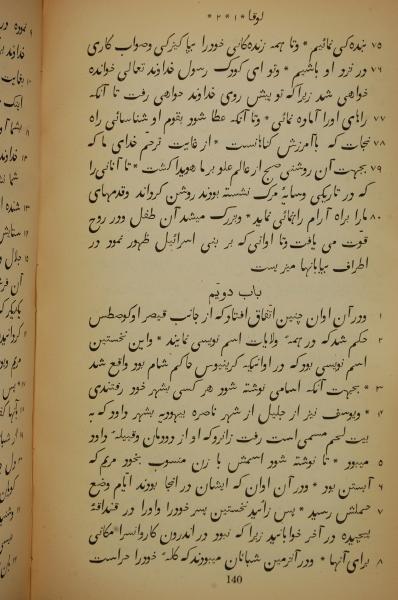 لوقا * ۱ * ۲ *
۷۵ بنده‌گی نمائیم * وتا همه زنده‌گانی خودرا بپاکیزگی وصواب کاری
۷۶ در نزد او باشیم * وتو ای کودک رسول خداوند تعالی خوانده
خواهی شد زیرا که تو پیش روی خداوند خواهی رفت تا آنکه
۷۷ راه‌های اورا آماده نمائی * وتا آنکه عطا شود بقوم او شناسائی راه
۷۸ نجات که بآمرزش گناهانست * از غایت ترحم خدای ما که
۷۹ بجهت آن روشنی صبح از عالم علو بر ما هویدا گشت * تا آنانی را
که در تاریکی وسایهٔ مرگ نشسته بودند روشن گرداند وقدمهای
۸۰ مارا براه آرام راهنمائی نماید * وبزرگ میشد آن طفل ودر روح
قوت می یافت وتا اوانی که بر بنی اسرائیل ظهور نمود در
اطراف بیابانها میزیست
باب دویم
۱ ودر آن اوان چنین اتفاق افتاد که از جانب قیصر اوکوصطس
۲ حکم شد که در همهٔ ولایات اسم نویسی نمایند * واین نخستین
اسم نویسی بود که در اوانیکه کرینیوس حاکم شام بود واقع شد
۳ * بجهت آنکه اسامی نوشته شود هر کسی بشهر خود رفتندی
۴ * ویوسف نیز از جلیل از شهر ناصره بیهودیه بشهر داود که به
بیت لحم مسمی است رفت زانرو که او از دودمان وقبیلهٔ داود
۵ میبود * تا نوشته شود اسمش با زن منسوب بخود مریم که
۶ آبستن بود * ودر آن اوان که ایشان در آنجا بودند ایام وضع
۷ حملش رسید * پس زائید نخستین پسر خودرا واورا در قنداقه
پیچیده در آخر خوابانید زیرا که نبود در اندرون کاروانسرا مکانی
۸ برای آنها * ودر آنزمین شبانان میبودند که گلهٔ خودرا حراست
140